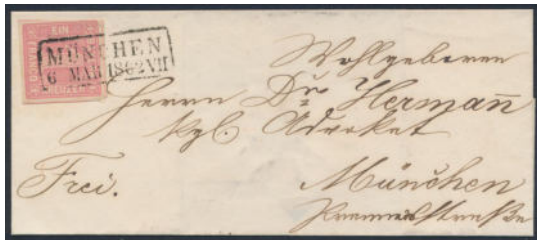 EIN
MÜNCHEN
6 MAR 1862 VII
Wohlgeboren
Herrn Dr Hermann
kgl. Advokat
Frei.
München